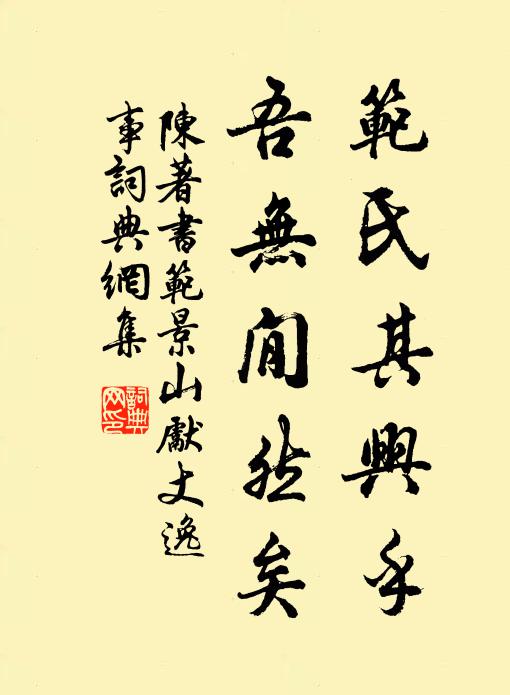 範氏其興乎
吾無間然矣
陳著書範景山獻丈逸
事詞典網集
詞典
网印